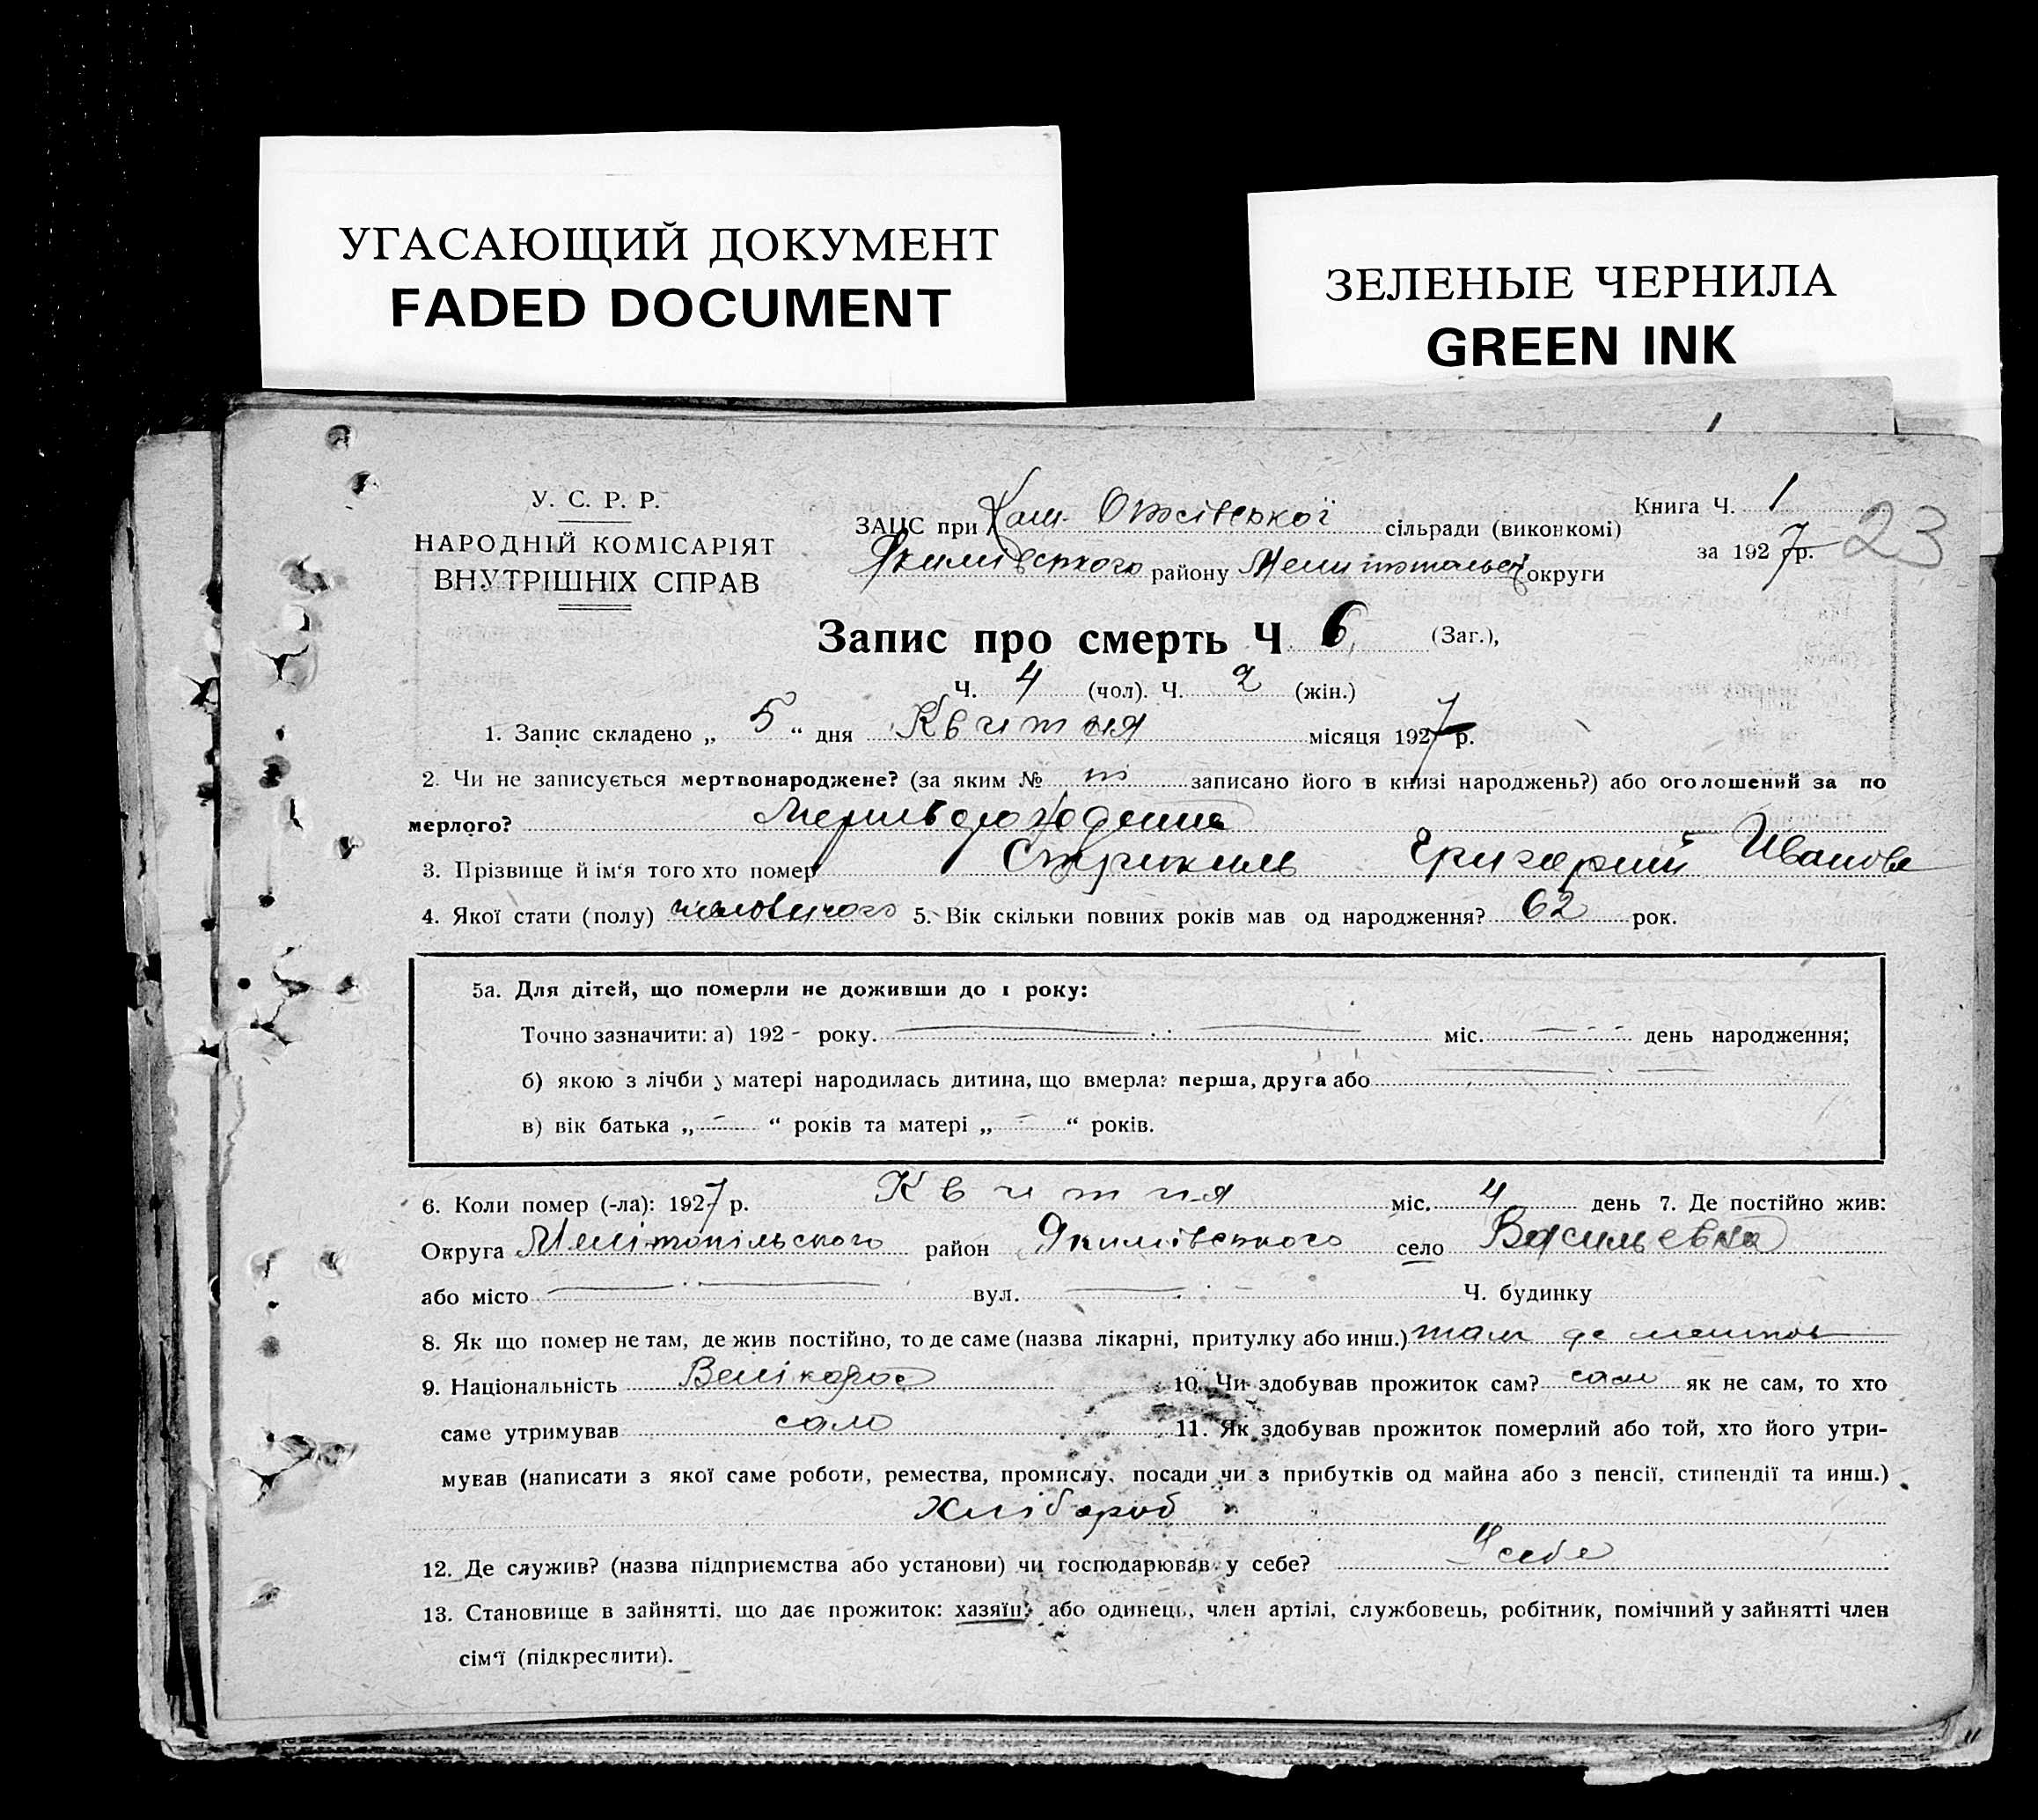 УГАСАЮЩИЙ ДОКУМЕНТ
FADED DOCUMENT
ЗЕЛЕНЫЕ ЧЕРНИЛА
GREEN INK
У. С. Р. Р.
НАРОДНІЙ КОМІСАРІЯТ
ВНУТРІШНІХ СПРАВ
ЗАЦС при сільради (виконкомі)
Якимівського району округи
Книга Ч. 1
за 1927 р. 23
Запис про смерть Ч 6 (Заг.),
Ч. 4 (чол). Ч. 2 (жін.)
1. Запис складено „ 5 “ дня Квитня місяця 1927 р.
2. Чи не записується мертвонароджене? (за яким № записано його в книзі народжень?) або оголошений за по
мерлого?
3. Прізвище й ім‘я того хто помер Григорий Иванов
4. Якої стати (полу) 5. Вік скільки повних років мав од народження? 62 рок.
5а. Для дітей, що померли не доживши до 1 року:
Точно зазначити: а) 192 - року. міс. день народження;
б) якою з лічби у матері народилась дитина, що вмерла: перша, друга або
в) вік батька „ “ років та матері „ “ років.
6. Коли помер (-ла): 1927 р. Квитня міс. 4 день 7. Де постійно жив:
Округа Мелітопільского район Якимівського село Васильевка
або місто вул. Ч. будинку
8. Як що помер не там, де жив постійно, то де саме (назва лікарні, притулку або инш.) там де
9. Національність Велікорос 10. Чи здобував прожиток сам? сам як не сам, то хто
саме утримував сам 11. Як здобував прожиток померлий або той, хто його утри-
мував (написати з якої саме роботи, ремества, промислу, посади чи з прибутків од майна або з пенсії, стипендії та инш.)
хлібороб
12. Де служив? (назва підприємства або установи) чи господарював у себе? У себе
13. Становище в зайнятті, що дає прожиток: хазяїн, або одинець, член артілі, службовець, робітник, помічний у зайнятті член
сім‘ї (підкреслити).